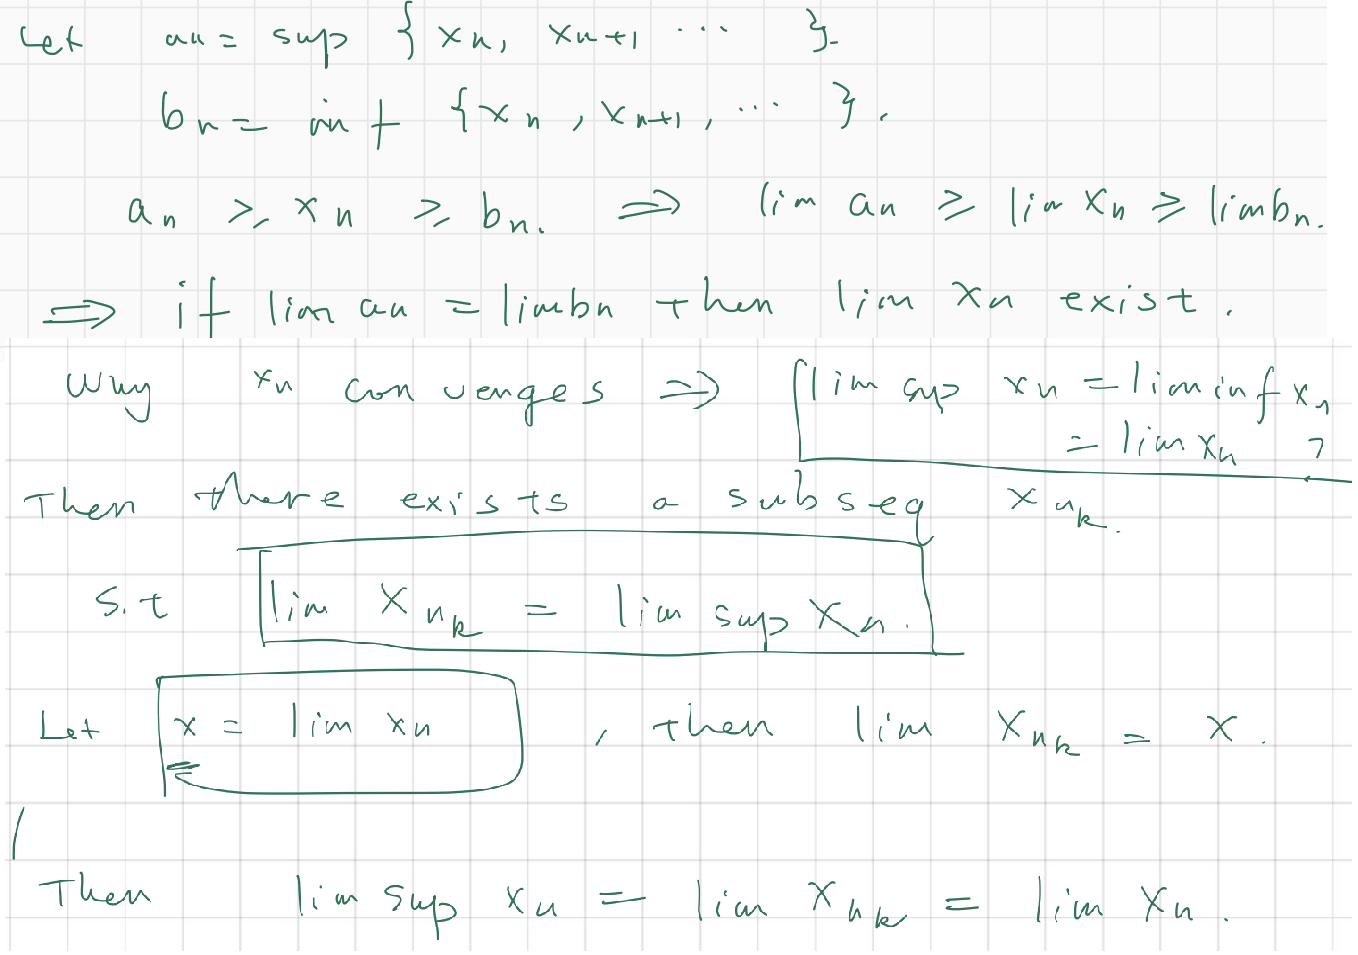 Let an = sup { xn, xn+1 ... }.
bn = inf {xn, xn+1, ... }.
an ≥ xn ≥ bn. ⟹ lim an ≥ lim xn ≥ lim bn.
⟹ if lim an = lim bn then lim xn exist.
Why xn converges ⟹ lim sup xn = lim inf xn
= lim xn ?
Then there exists a subseq xnk.
s.t lim xnk = lim sup xn.
Let x = lim xn , then lim xnk = x.
Then lim sup xn = lim xnk = lim xn.